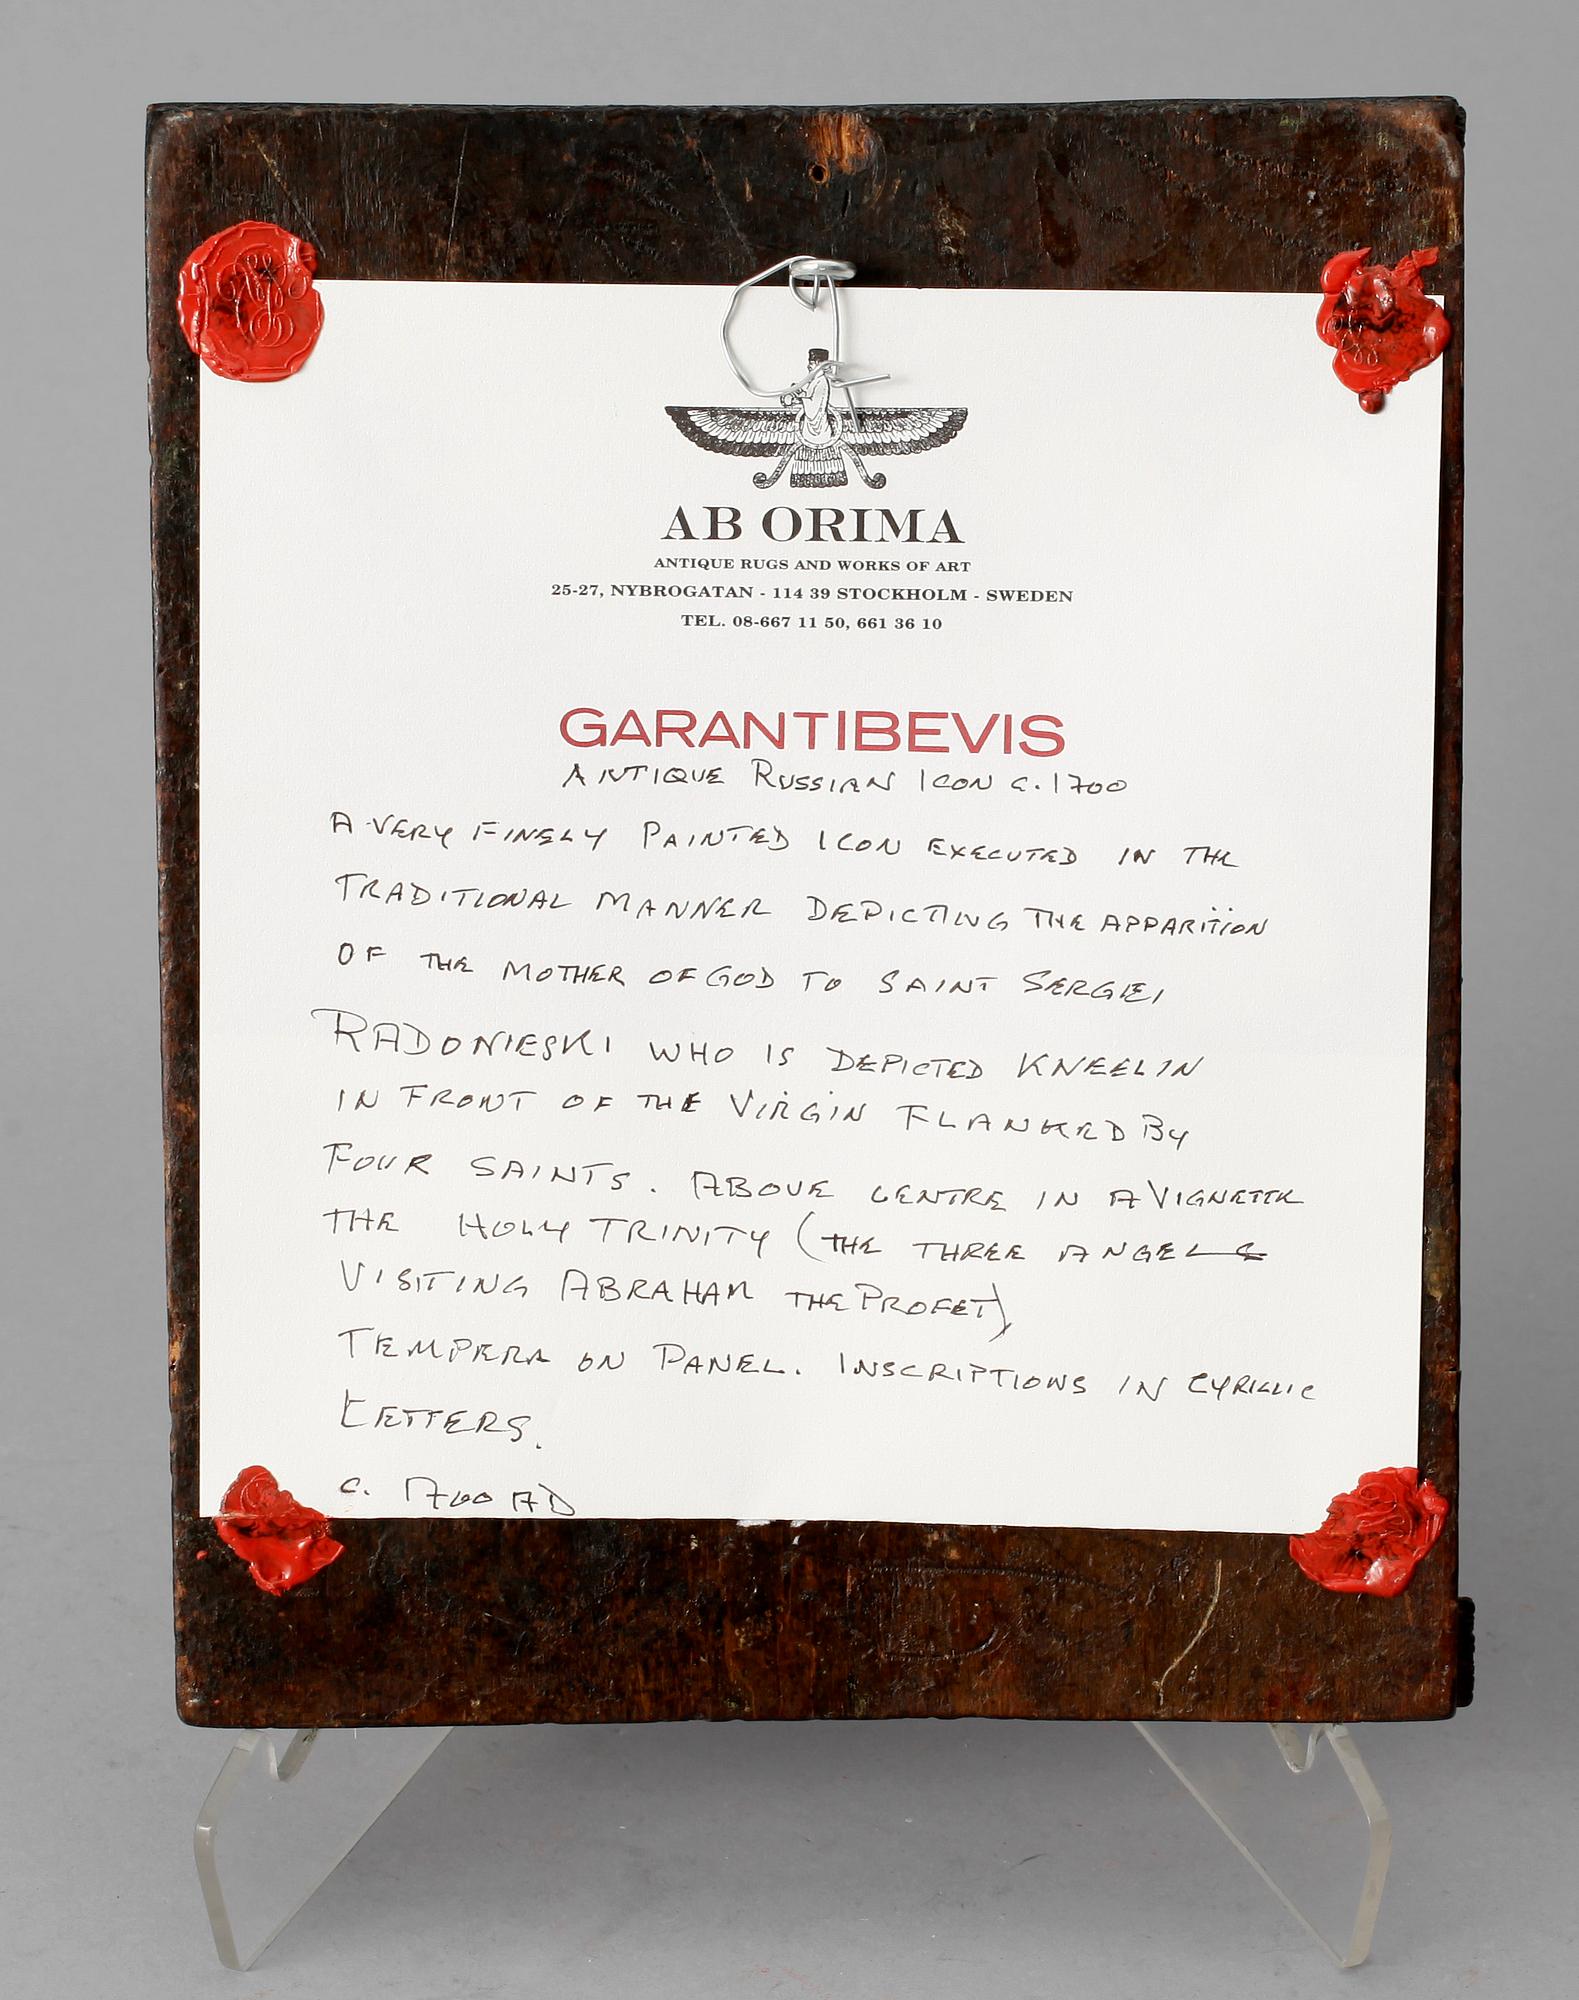 AB ORIMA
ANTIQUE RUGS AND WORKS OF ART
25-27, NYBROGATAN - 114 39 STOCKHOLM - SWEDEN
TEL. 08-667 11 50, 661 36 10
GARANTIBEVIS
ANTIQUE RUSSIAN ICON C. 1700
A VERY FINELY PAINTED ICON EXECUTED IN THE
TRADITIONAL MANNER DEPICTING THE APPARITION
OF THE MOTHER OF GOD TO SAINT SERGIEI
RADONIESKI WHO IS DEPICTED KNEELIN
IN FRONT OF THE VIRGIN FLANKED BY
FOUR SAINTS. ABOVE CENTRE IN A VIGNETTE
THE HOLY TRINITY (THE THREE ANGELS
VISITING ABRAHAM THE PROFET)
TEMPERA ON PANEL. INSCRIPTIONS IN CYRILLIC
LETTERS.
C. 1700 AD